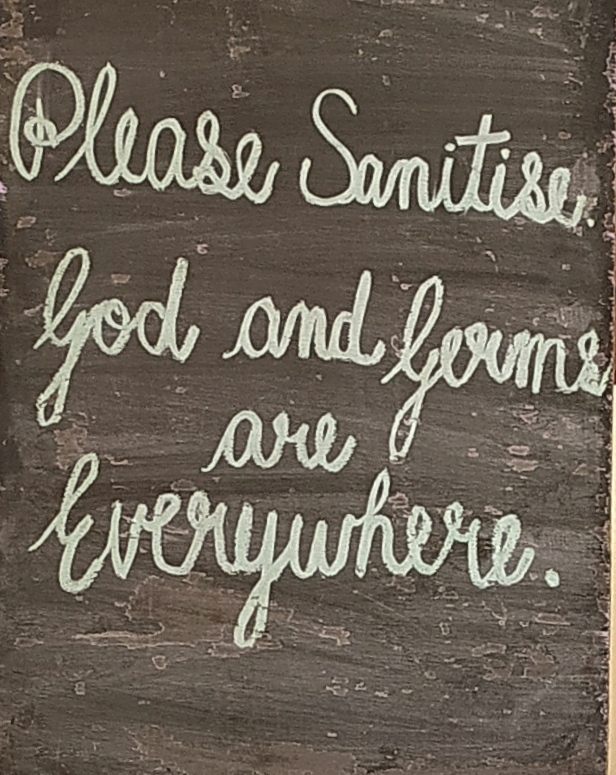 Please Sanitise.
God and Germs
are
Everywhere.